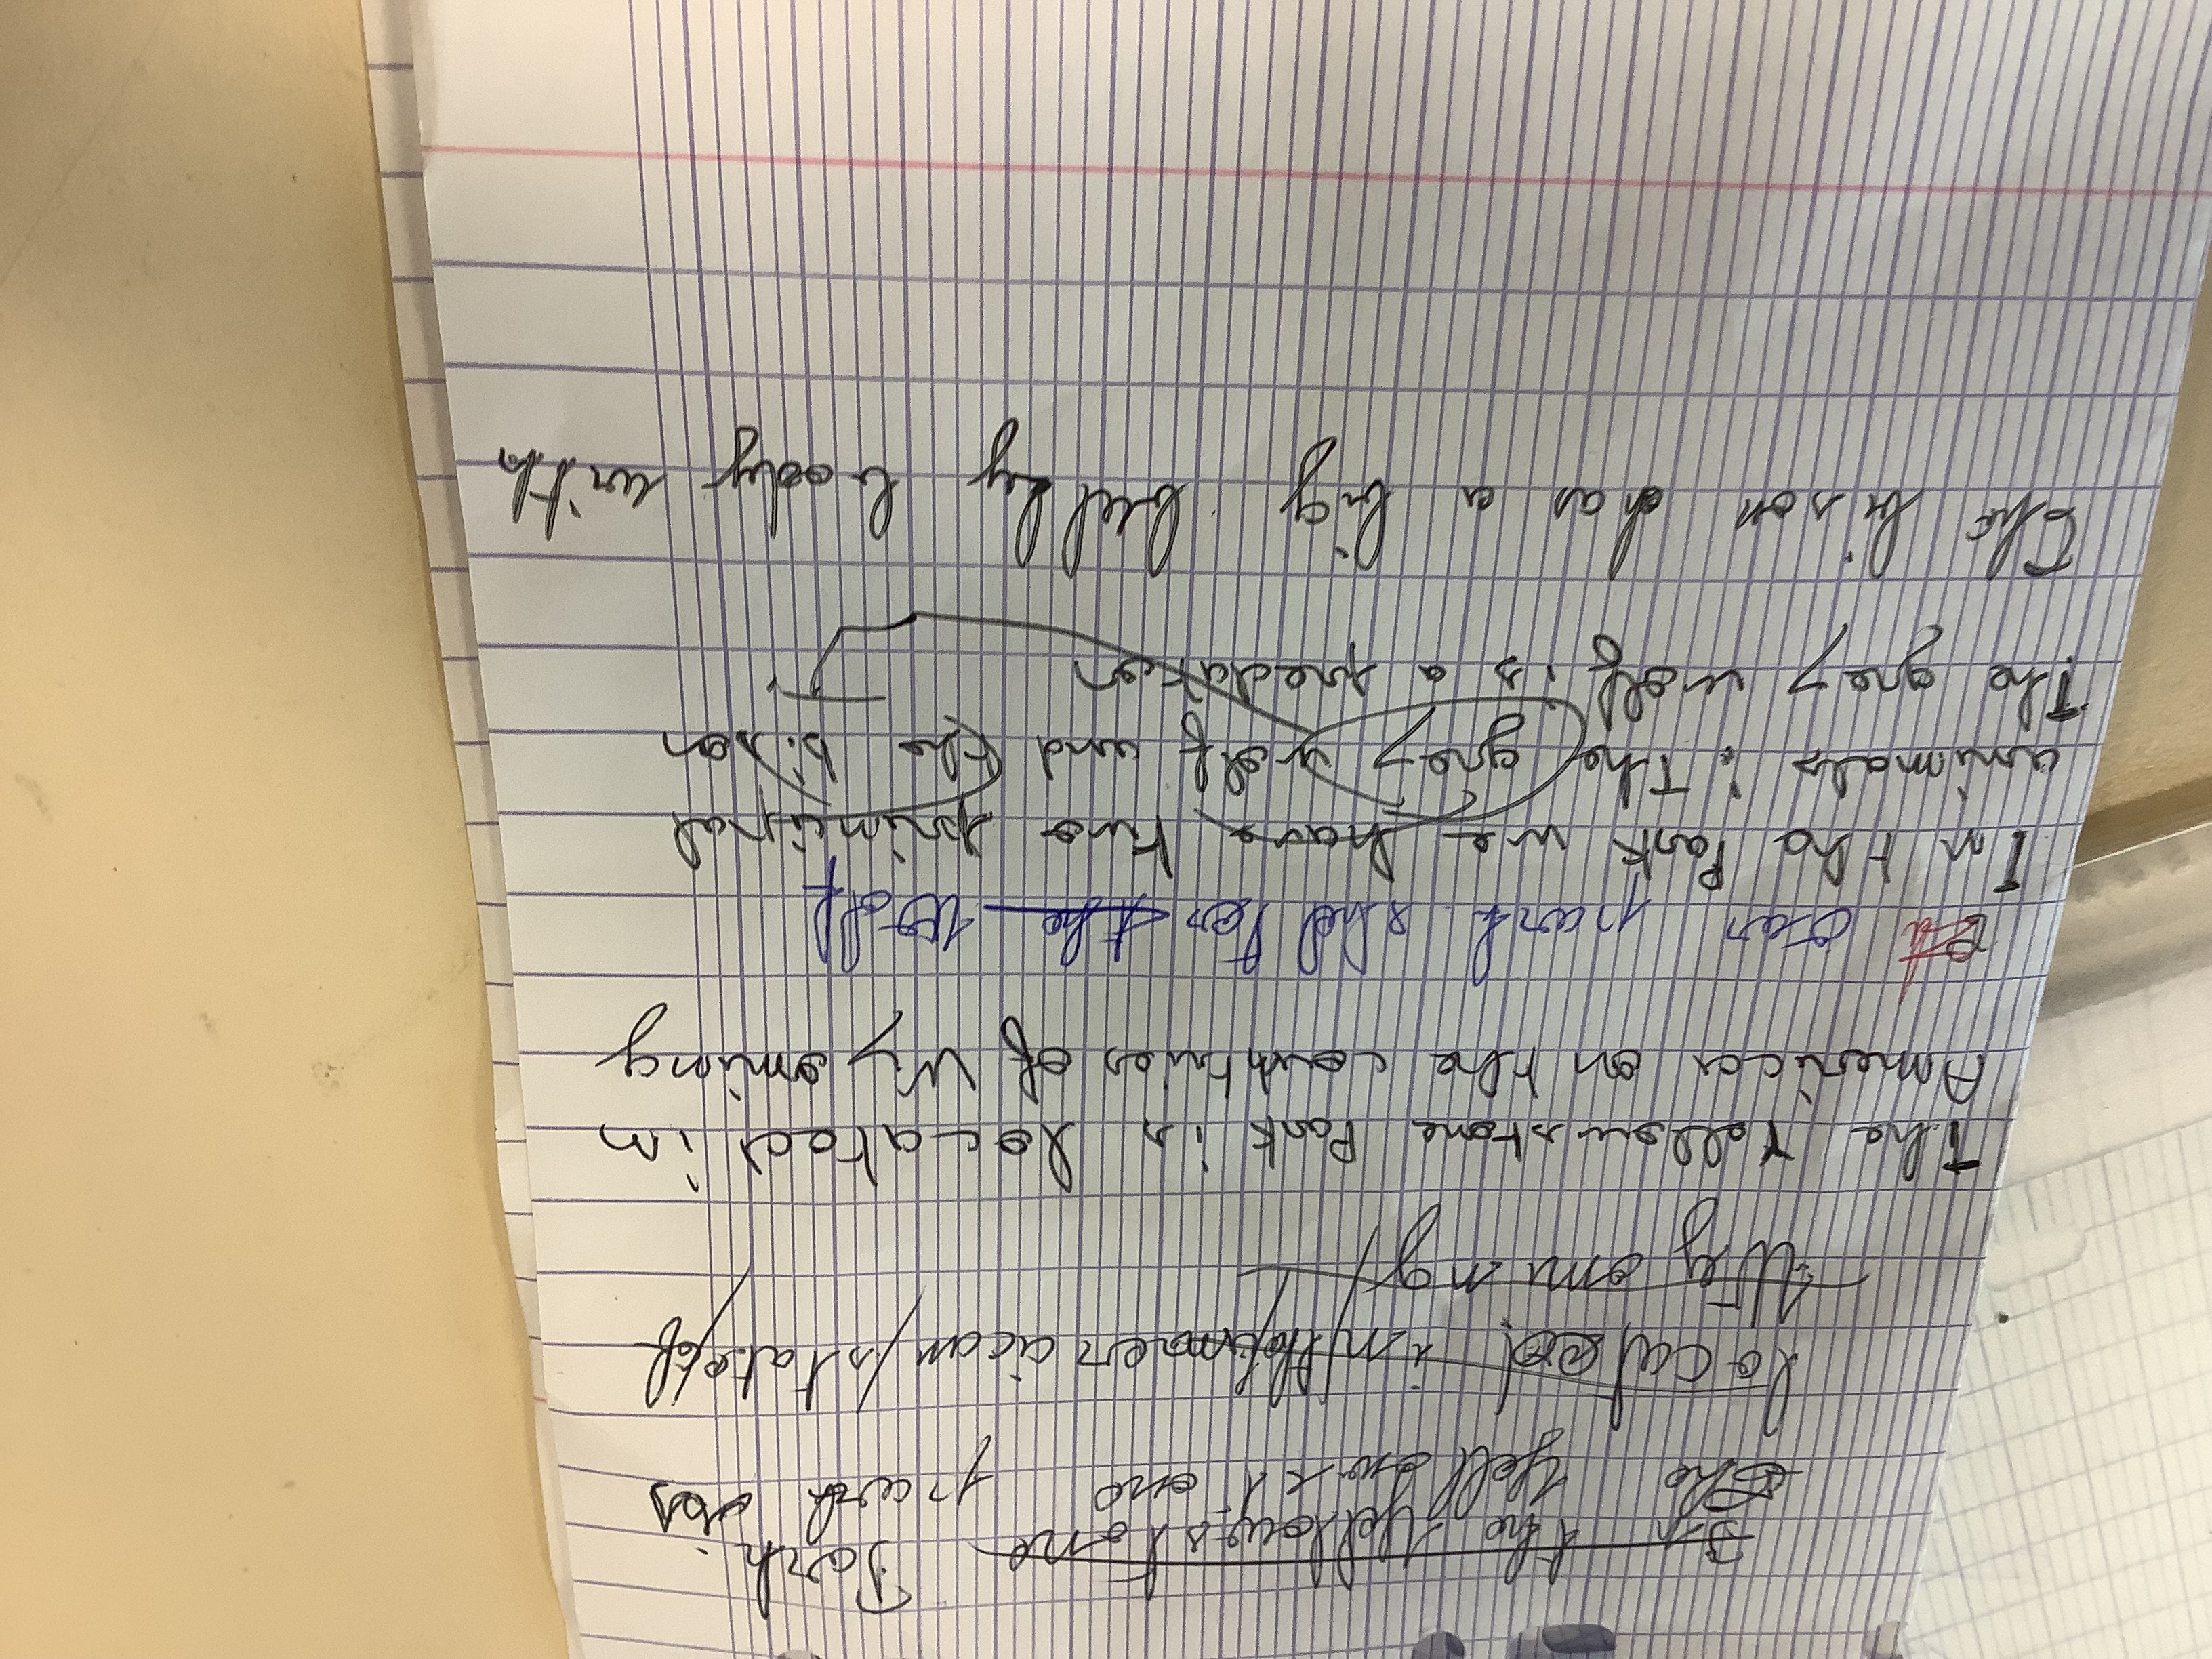 In the Yellowstone Park
The Yellowstone park is
located in the american state of
Wyoming
The Yellowstone Park is located in
America on the contries of Wyoming
park shelter the wolf
In the Park we have two principal
animals : The grey wolf and the bison
The grey wolf is a predator
The bison has a big bulky body with